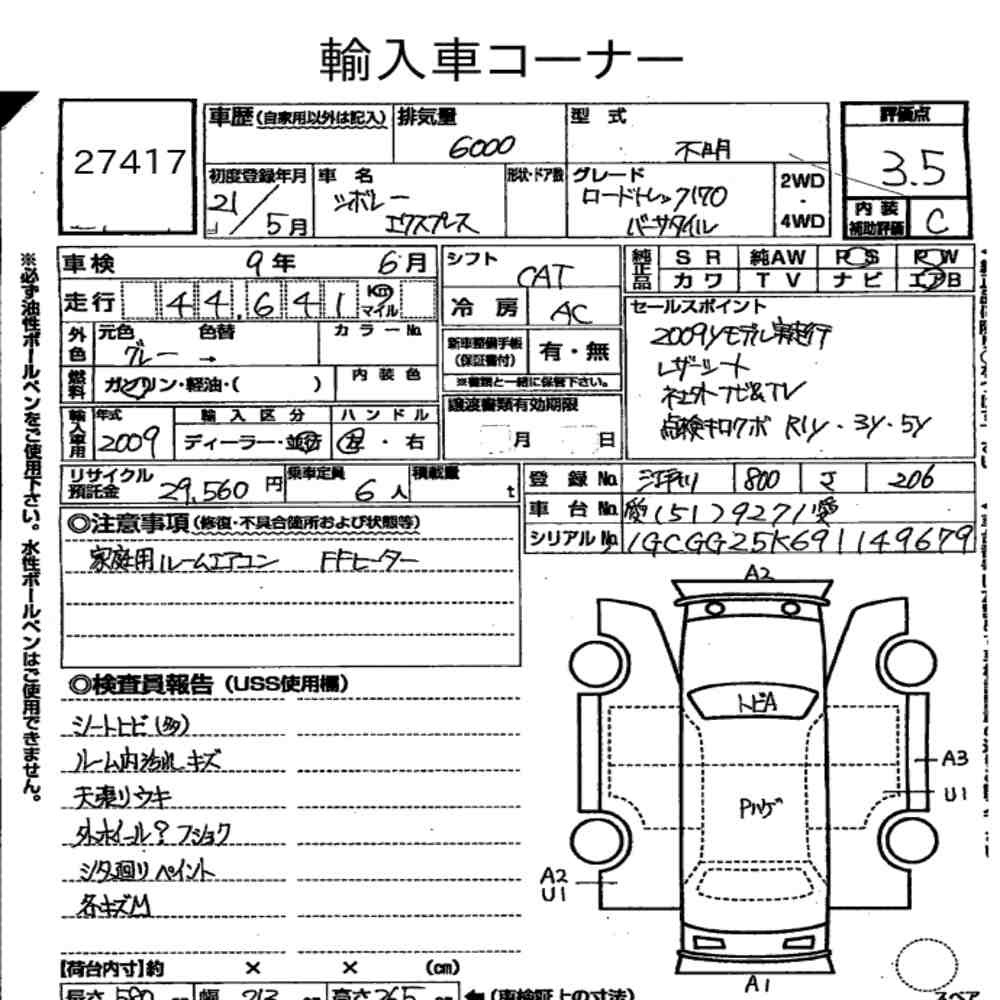 輸入車コーナー
27417
車歴(自家用以外は記入) 排気量 6000 型式 不明
評価点 3.5
初度登録年月 21/5月 車名 シボレー エクスプレス 形状・ドア数 グレード ロードトレック170 バーサタイル 2WD・4WD
内装補助評価 C
車検 9年 6月
走行 44,641 Km マイル
外色 元色 グレー → 色替 カラーNo.
燃料 ガソリン・軽油・( ) 内装色
輸入車用 年式 2009 輸入区分 ディーラー・並行 ハンドル 左・右
リサイクル預託金 29,560円 乗車定員 6人 積載量 t
シフト CAT
冷房 AC
新車整備手帳(保証書付) 有・無
※書類と一緒に保管下さい。
譲渡書類有効期限
月 日
純正品 SR 純AW PS PW
カワ TV ナビ エアB
セールスポイント
2009yモデル実走行
レザーシート
社外ナビ&TV
点検キロクボ R1y・3y・5y
登録No. 800 さ 206
車台No. 愛[51]9271愛
シリアルNo. 1GCGG25K691149679
◎注意事項(修復・不具合箇所および状態等)
家庭用ルームエアコン FFヒーター
◎検査員報告(USS使用欄)
シートヒビ(多)
ルーム内汚れ キズ
天張りウキ
外ホイール? フショク
シタ廻りペイント
各キズM
【荷台内寸】約 × × (cm)
長さ 580 幅 213 高さ 265 (車検証上の寸法)
A2
トビA
A3
U1
Pハゲ
A2
U1
A1
スペア
※必ず油性ボールペンをご使用下さい。水性ボールペンはご使用できません。